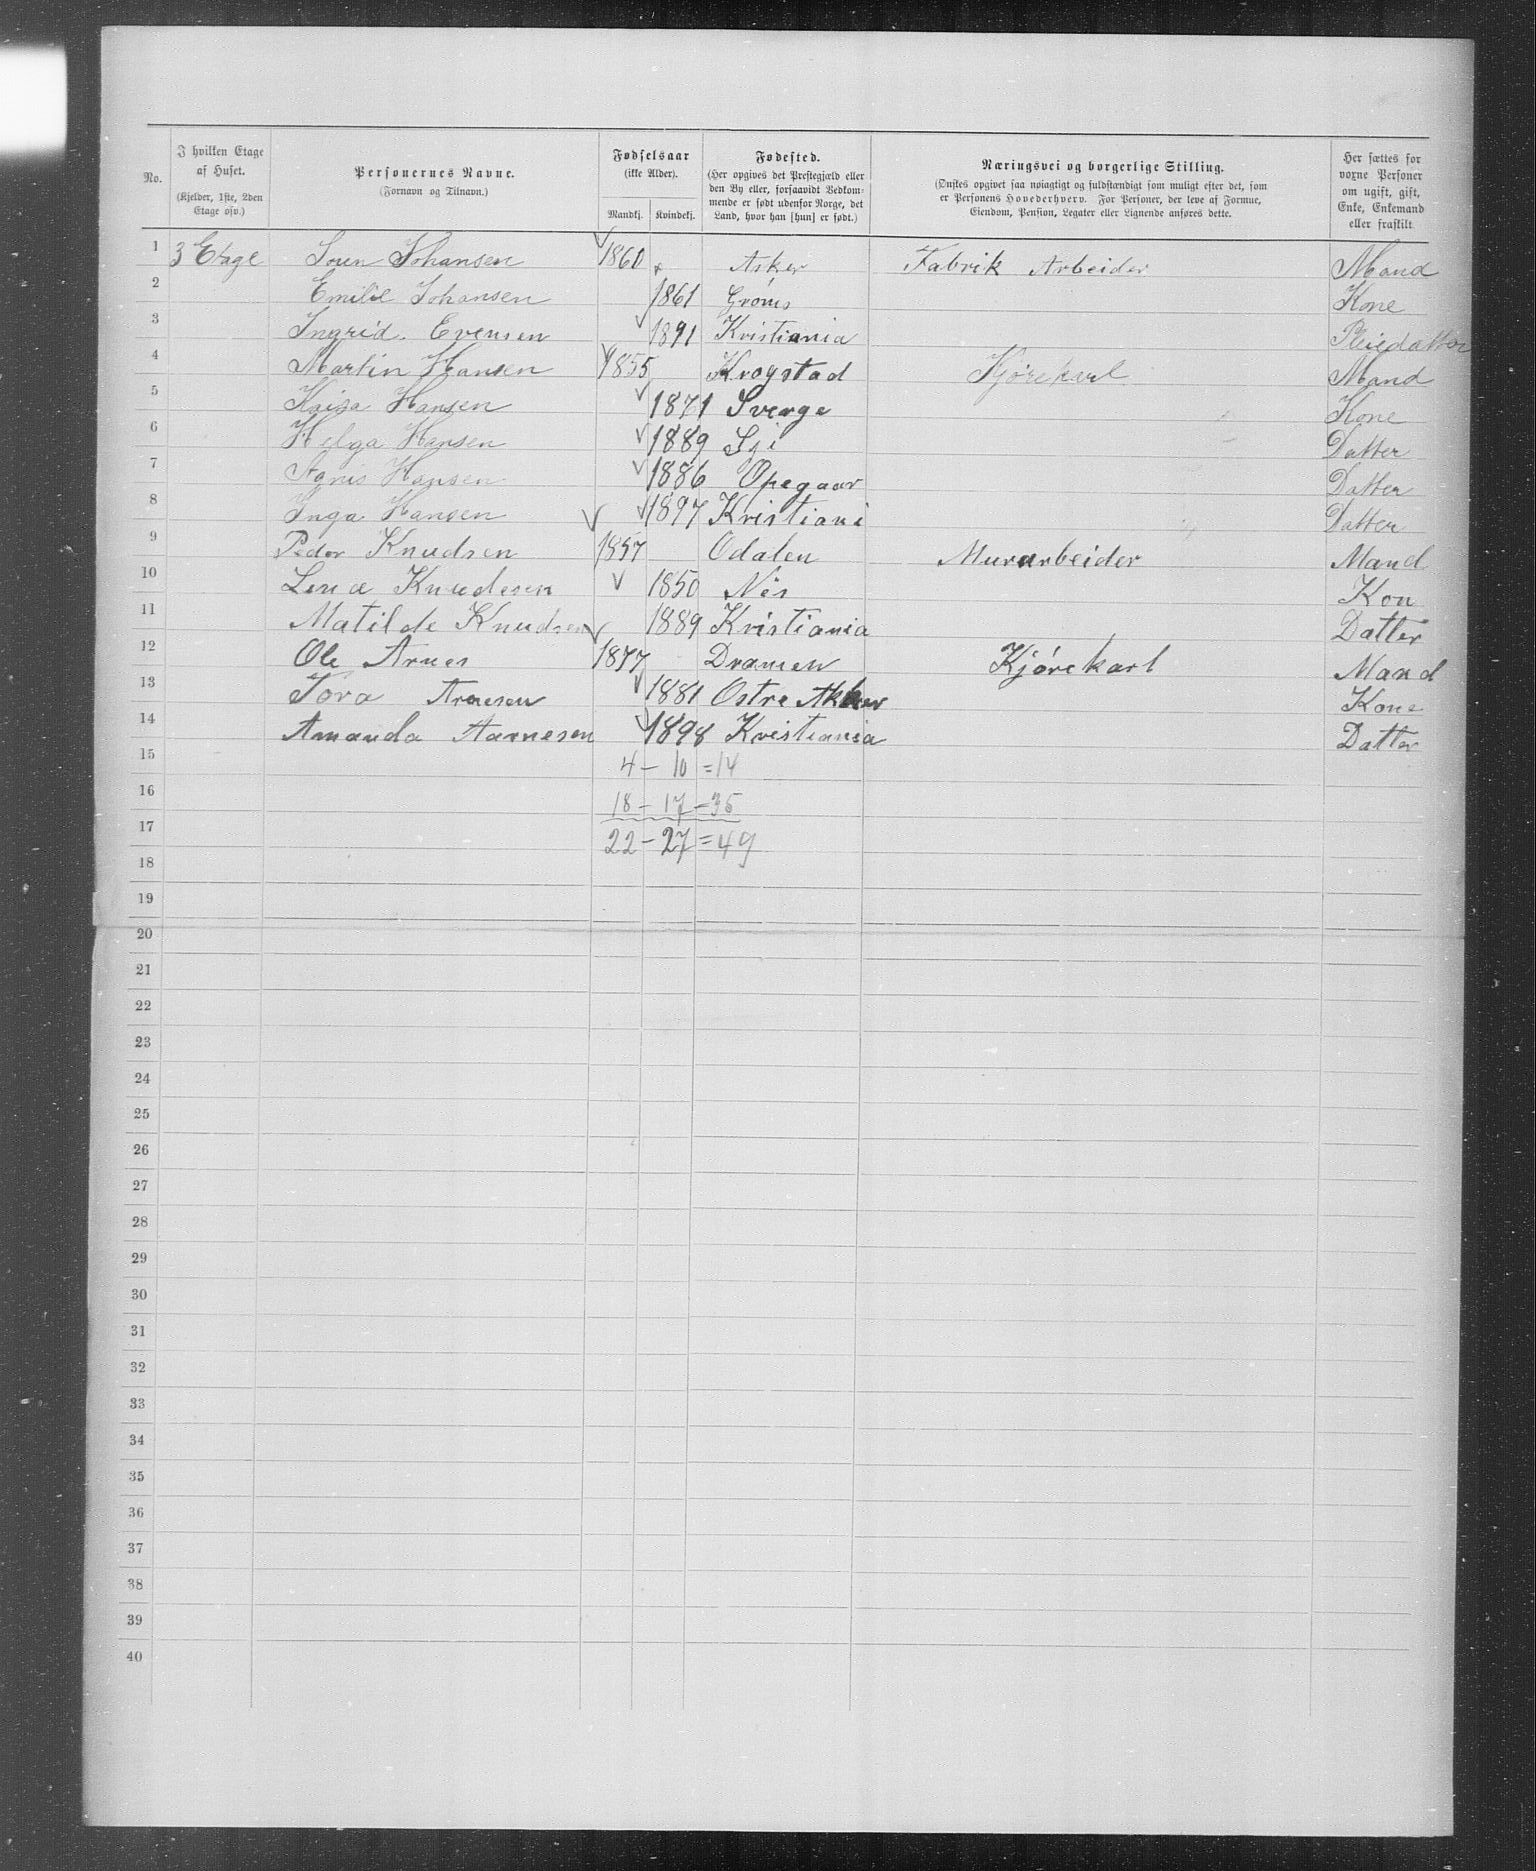 No. | I hvilken Etage af Huset. (Kjelder, 1ste, 2den Etage osv.) | Personernes Navne. (Fornavn og Tilnavn.) | Fødselsaar (ikke Alder). Mandkj. | Kvindekj. | Fødested. (Her opgives det Prestegjæld eller den By eller, forsaavidt Vedkommende er født udenfor Norge, det Land, hvor han [hun] er født.) | Næringsvei og borgerlige Stilling. (Ønskes opgivet saa nøiagtigt og fuldstændigt som muligt efter det, som er Personens Hovederhverv. For Personer, der leve af Formue, Eiendom, Pension, Legater eller Lignende anføres dette. | Her sættes for voxne Personer om ugift, gift, Enke, Enkemand eller fraskilt
1 3 Etage Soren Johansen 1860 Asker Fabrik Arbeider Mand
2 Emilie Johansen 1861 Kone
3 Ingrid. Evensen 1891 Kristiania Pleiedatter
4 Martin Hansen 1855 Krogstad Kjørekarl Mand
5 Kaisa Hansen 1871 Sverge Kone
6 Helga Hansen 1889 Datter
7 Agnis Hansen 1886 Opegaar Datter
8 Inga Hansen 1897 Kristiani Datter
9 Peder Knudsen 1857 Odalen Murarbeider Mand
10 Lena Knudesen 1850 Nes Kon
11 Matilde Knudsen 1889 Kristiania Datter
12 Ole Arnes 1877 Dramen Kjørekarl Mand
13 Tora Arnesen 1881 Ostre Akker Kone
14 Amanda Aarnesen 1898 Kristiania Datter
15 4 – 10 = 14
16 18 – 17 – 35
17 22 – 27 = 49
18
19
20
21
22
23
24
25
26
27
28
29
30
31
32
33
34
35
36
37
38
39
40